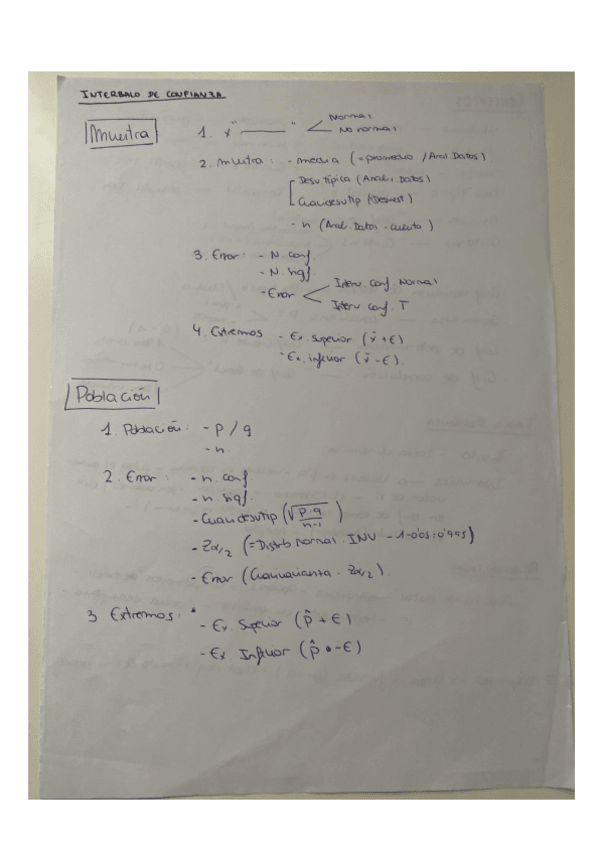 INTERBALO DE CONFIANZA
Muestra
1. x "———" Normal
No normal
2. muestra: - media (=promedio / Anal Datos)
Desv típica (Anal. Datos)
Cuasidesvtip (Desvest)
- n (Anal. Datos - cuenta)
3. Error: - N. conf
- N. sigf
- Error Interv. conf. Normal
Interv conf. T
4. Extremos - Ex superior (x̄ + E)
- Ex. inferior (x̄ - E)
Población
1. Población: - p / q
- n
2. Error: - n. conf.
- n sigf.
- Cuasidesvtip (√p·q/n-1)
- Zα/2 (=Distrib Normal. INV - 1-0'05:0'995)
- Error (Cuasivarianza · Zα/2).
3 Extremos:
- Ex. Superior (p̂ + E)
- Ex. Inferior (p̂ - E)